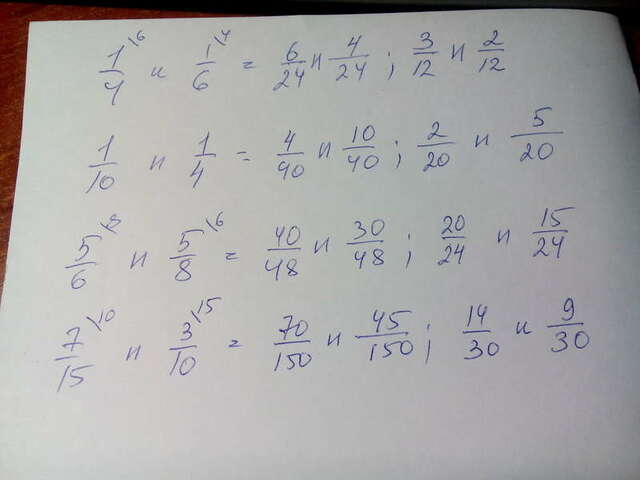 1/4 \6 и 1/6 \4 = 6/24 и 4/24 ; 3/12 и 2/12
1/10 и 1/4 = 4/40 и 10/40 ; 2/20 и 5/20
5/6 \8 и 5/8 \6 = 40/48 и 30/48 ; 20/24 и 15/24
7/15 \10 и 3/10 \15 = 70/150 и 45/150 ; 14/30 и 9/30